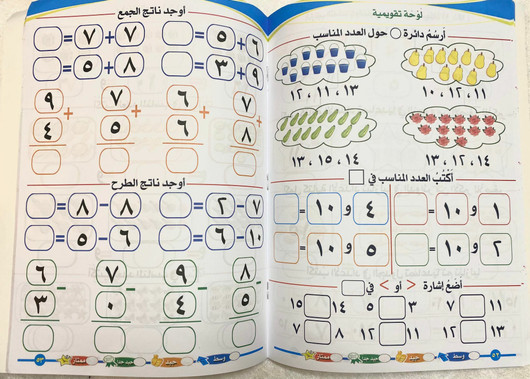 لوحة تقويمية
أرسُم دائرة ○ حول العدد المناسب
١١ ، ١٢ ، ١٠
١٣ ، ١١ ، ١٢
١٤ ، ١٢ ، ١٣
١٤ ، ١٥ ، ١٣
أكتُبُ العدد المناسب في □
١ و ١٠ =
٤ و ١٠ =
٢ و ١٠ =
٥ و ١٠ =
أضع إشارة < أو > في □
١١ □ ٧
٣ □ ٥
١٤ □ ١٥
١٣ □ ١٢
١١ □ ١٢
٨ □ ٧
٥٢ وسط جيد جيد جداً ممتاز
أوجد ناتج الجمع
٦ + ٥ =
٧ + ٧ =
٩ + ٣ =
٥ + ٨ =
٧ + ٦ + ٧ + ٩ +
٨ ٦ ٥ ٤
أوجد ناتج الطرح
٧ - ٢ =
٨ - ٨ =
١٠ - ٦ =
٦ - ٥ =
٨ - ٩ - ٧ - ٦ -
٥ ٤ ٠ ٣
وسط جيد جيد جداً ممتاز ٥٣